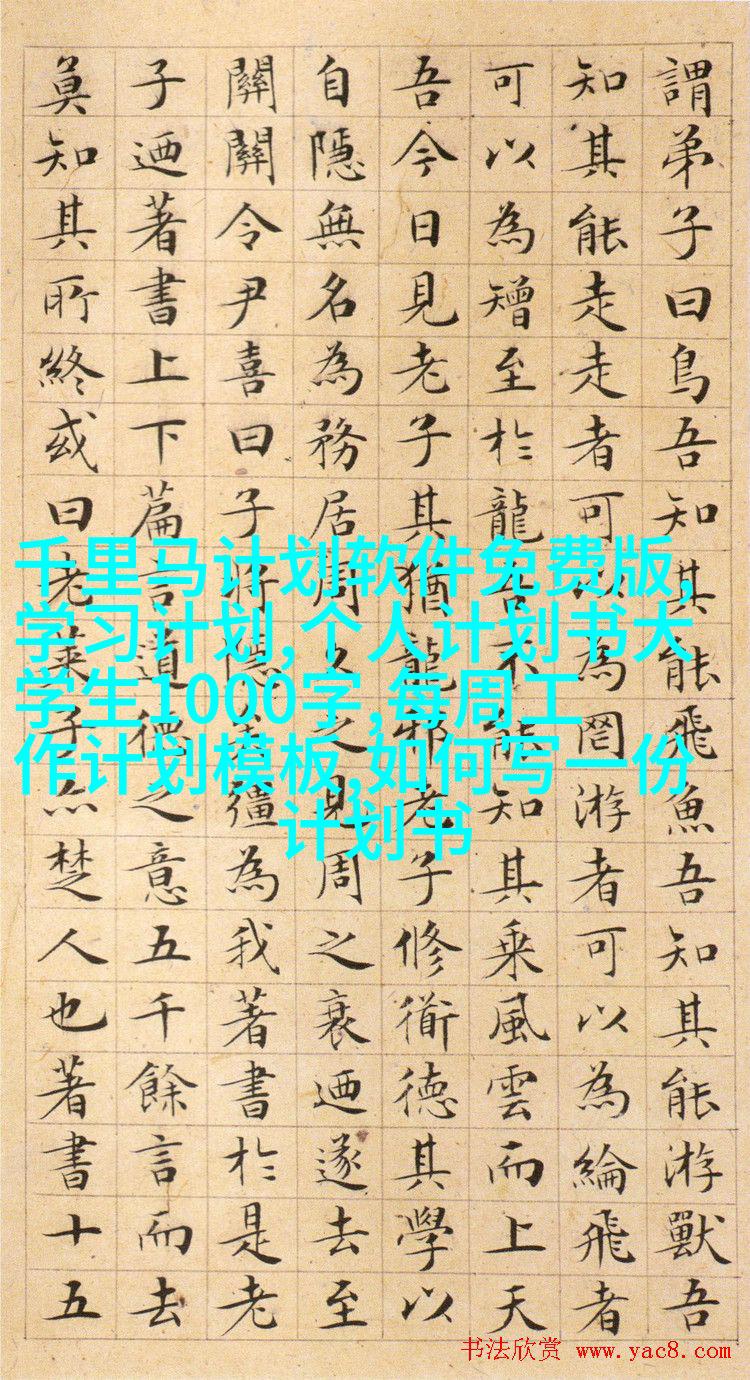 謂弟子曰鳥吾知其能飛魚吾知其能游獸吾
知其能走走者可以為罔游者可以為綸飛者
可以為矰至於龍吾不能知其乘風雲而上天
吾今日見老子其猶龍邪老子修衜德其學以
自隱無名為務居周久之見周之衰迺遂去至
關關令尹喜曰子將隱矣彊為我著書於是老
子迺著書上下篇言道德之意五千餘言而去
莫知其所終或曰老萊子亦楚人也著書十五
千里马计划软件免费版,
学习计划,个人计划书大
学生1000字,每周工
作计划模板,如何写一份
计划书
书法欣赏 www.yac8.com